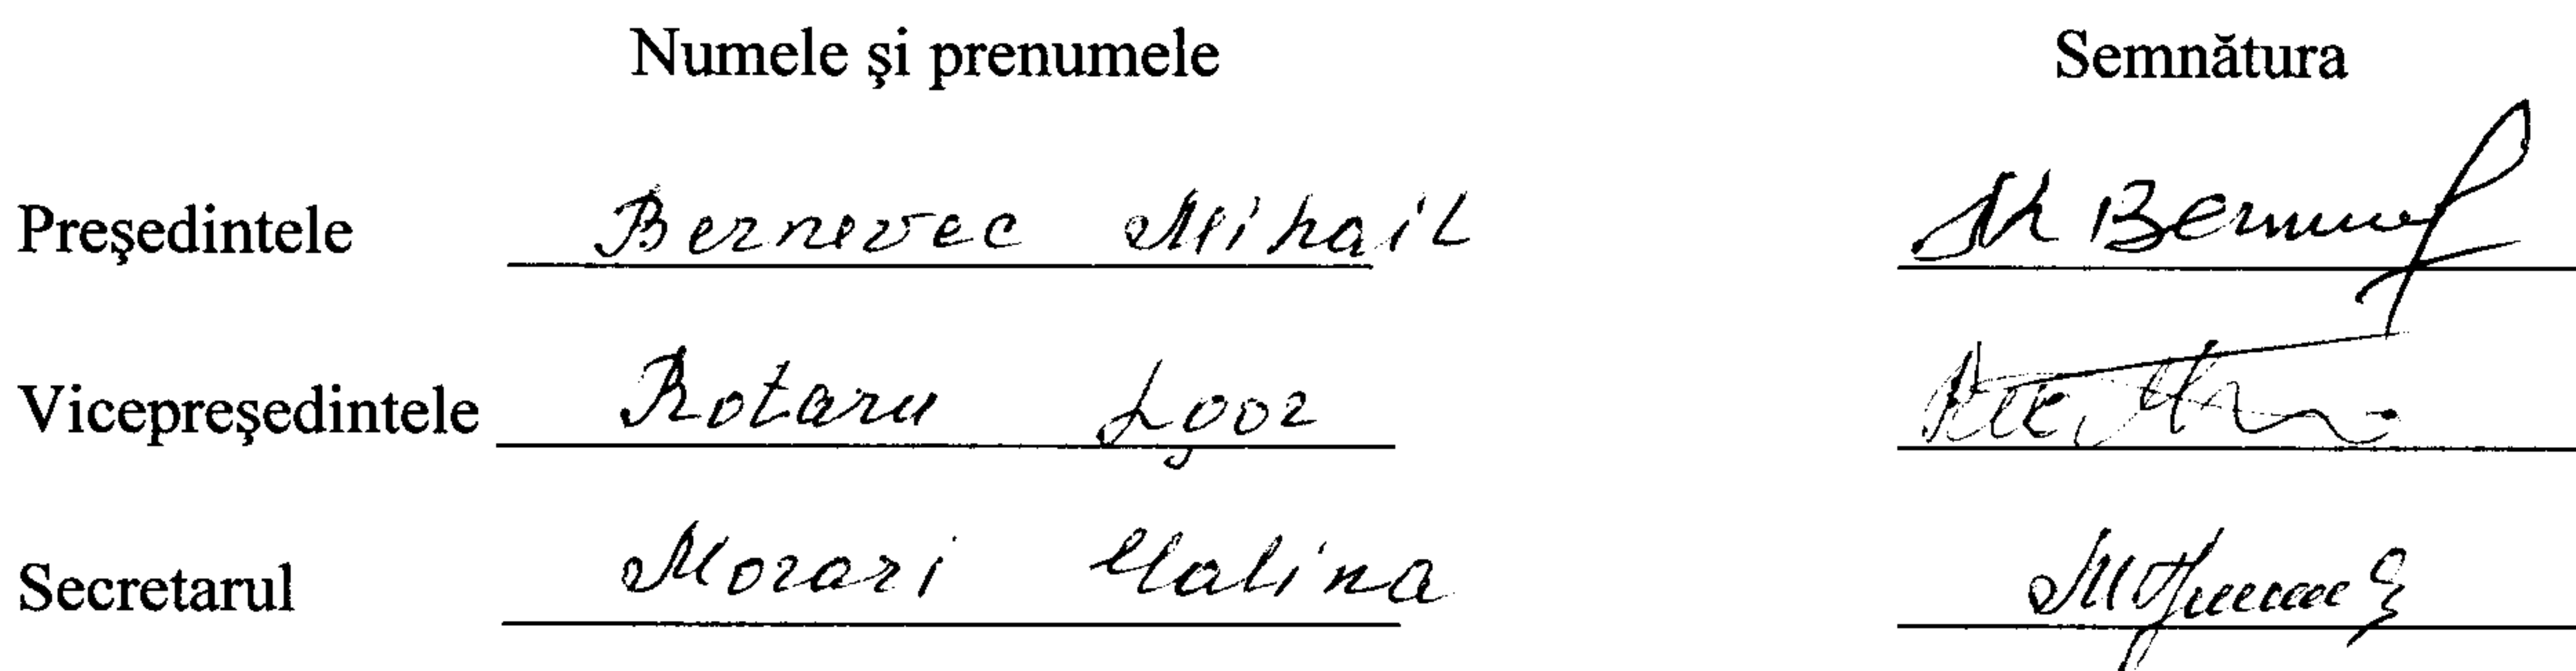 Numele şi prenumele Semnătura
Preşedintele Bernevec Mihail
Vicepreşedintele Rotaru
Secretarul Morari Galina